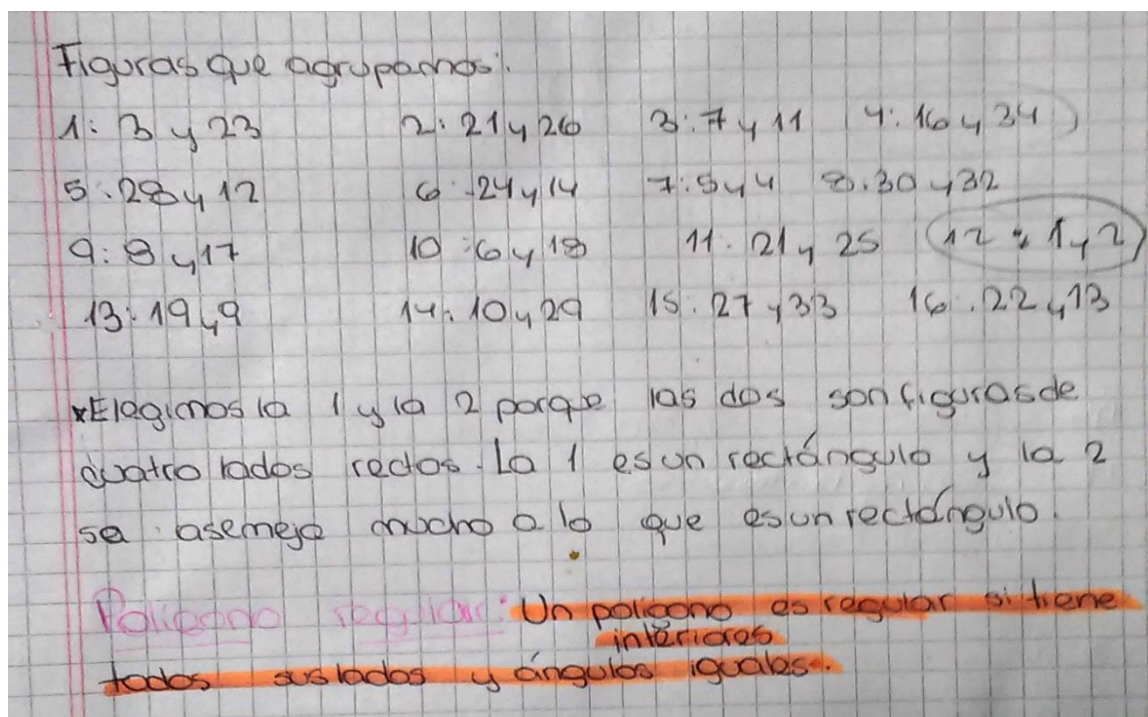 Figuras que agrupamos:
1: 3 y 23 2: 21 y 26 3: 7 y 11 4: 16 y 34
5: 28 y 12 6: 24 y 14 7: 5 y 4 8: 30 y 32
9: 8 y 17 10: 6 y 18 11: 21 y 25 12: 1 y 2
13: 19 y 9 14: 10 y 29 15: 27 y 33 16: 22 y 13
*Elegimos la 1 y la 2 porque las dos son figuras de
cuatro lados rectos. La 1 es un rectángulo y la 2
se asemeja mucho a lo que es un rectángulo.
Polígono regular: Un polígono es regular si tiene
interiores
todos sus lados y ángulos iguales.